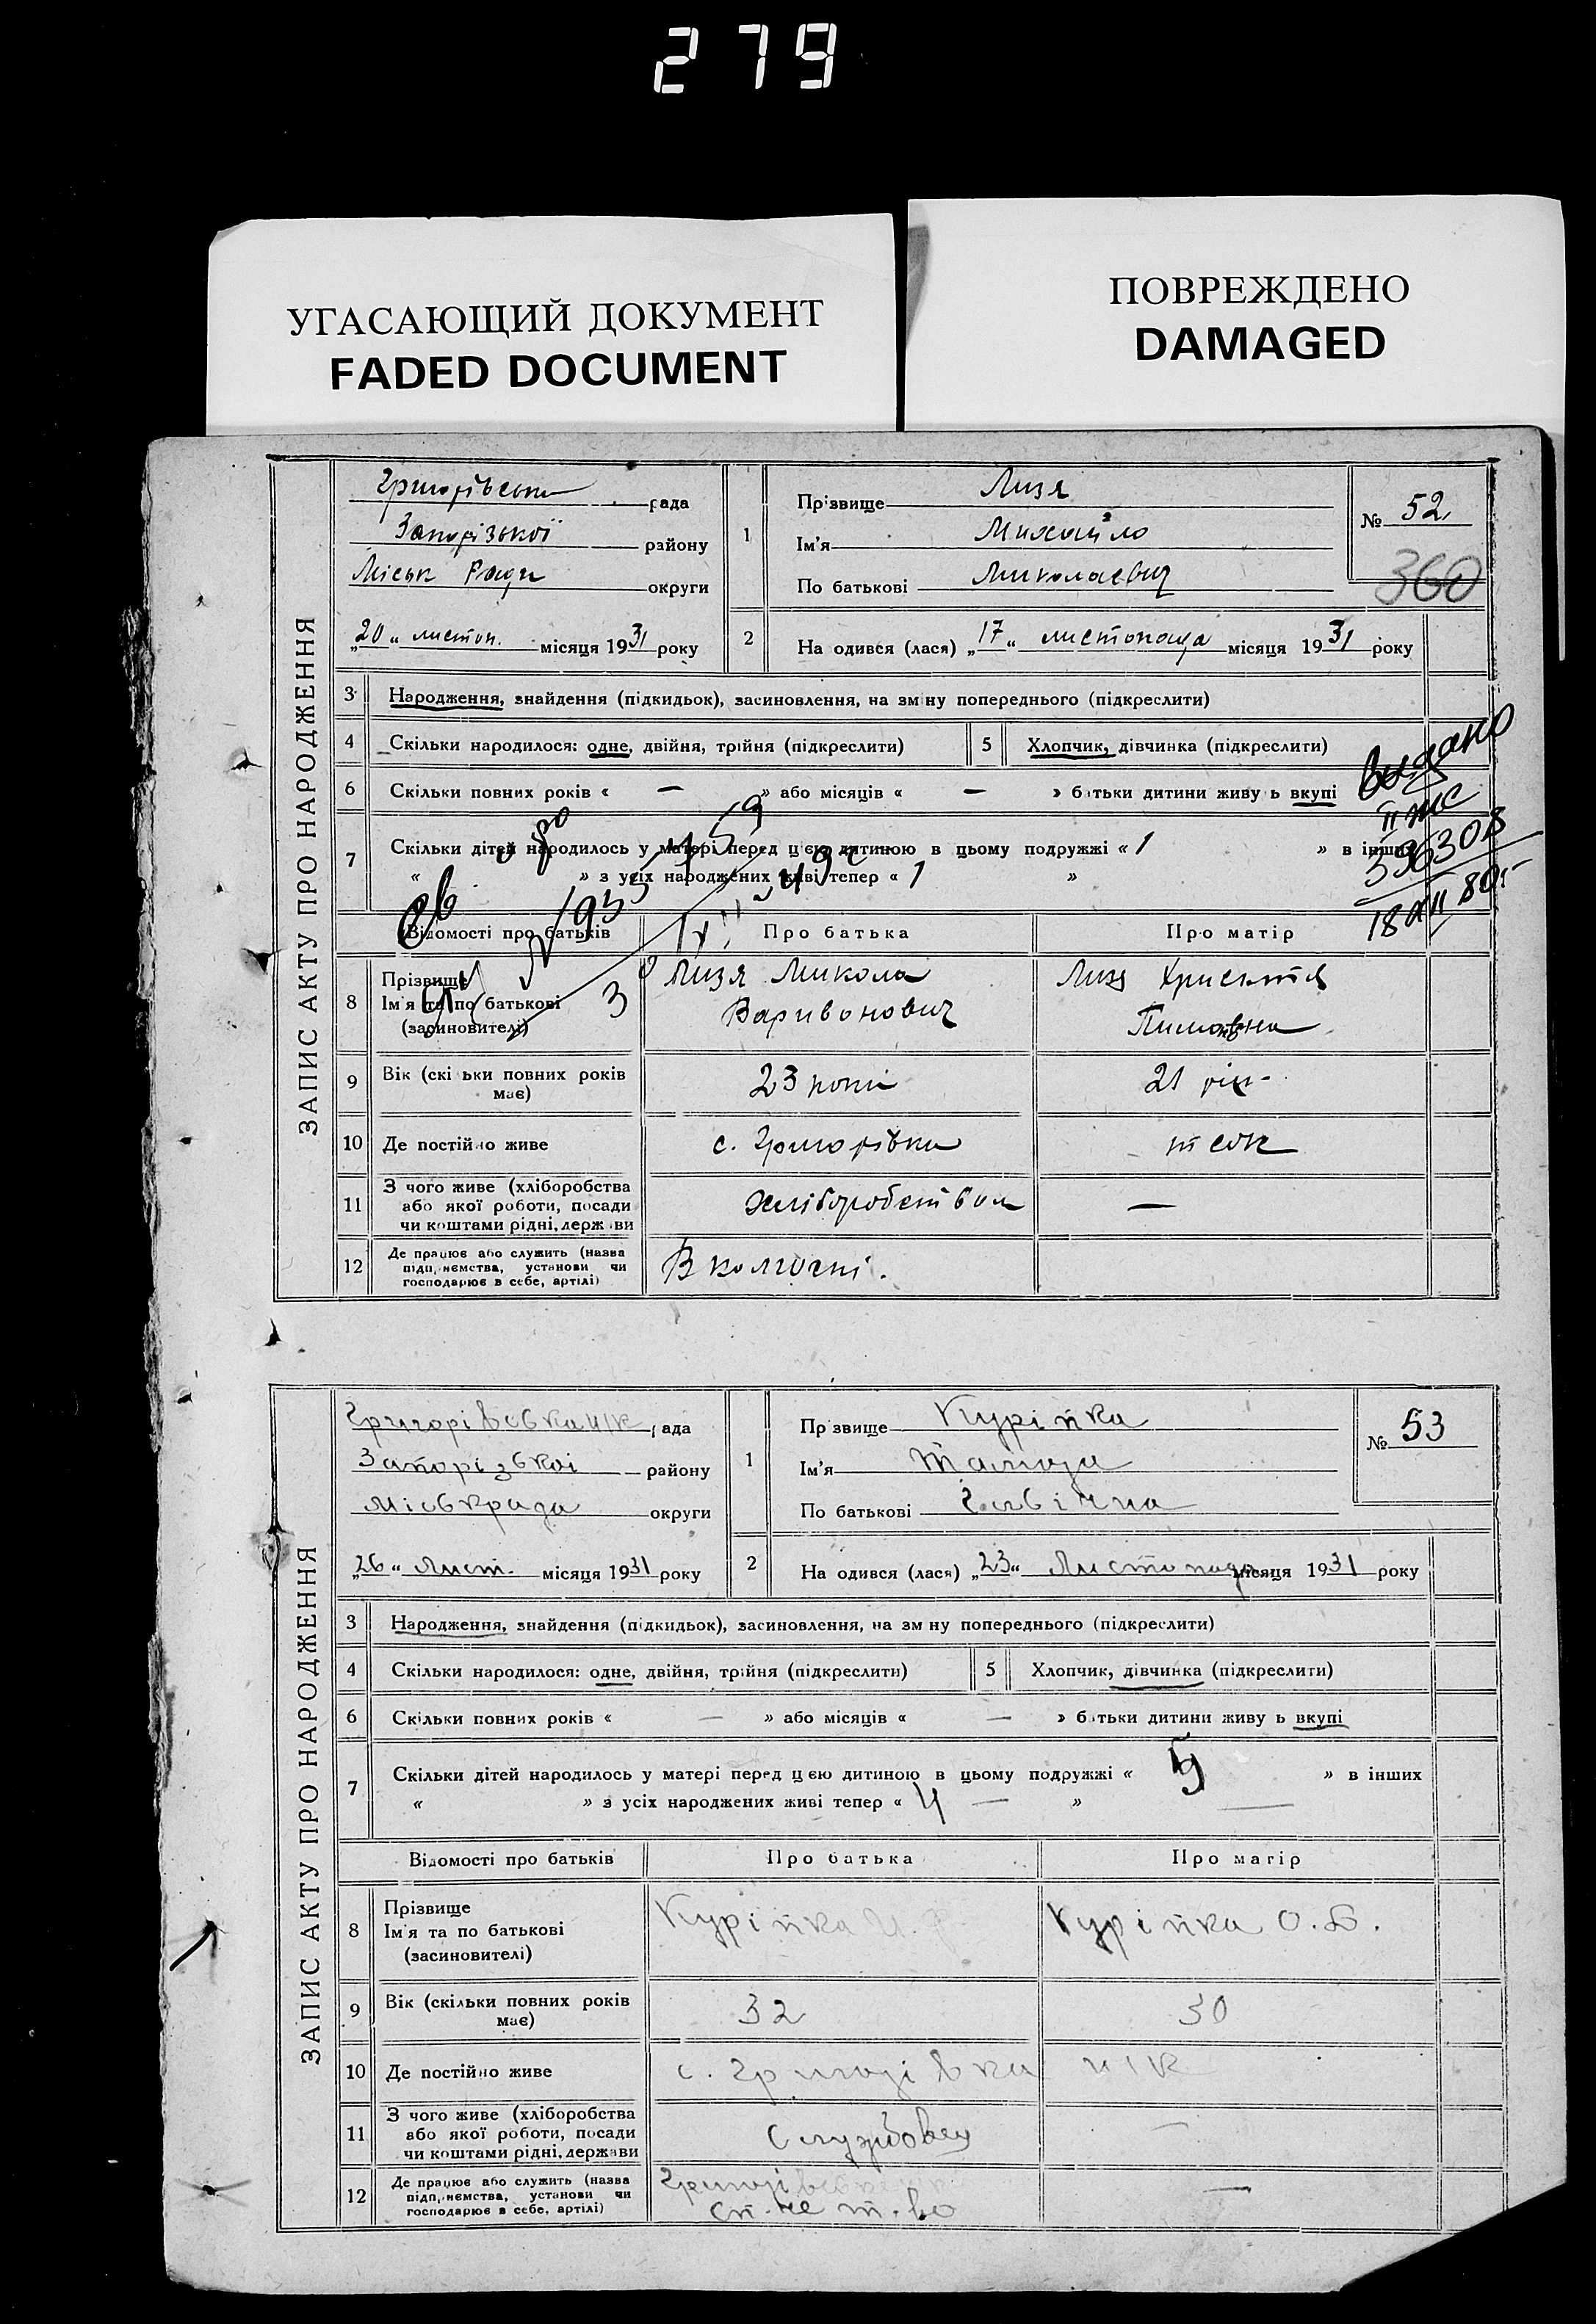 279
УГАСАЮЩИЙ ДОКУМЕНТ
FADED DOCUMENT
ПОВРЕЖДЕНО
DAMAGED
ЗАПИС АКТУ ПРО НАРОДЖЕННЯ
рада
Запорізької району
Міськ Ради округи
"20" листоп. місяця 1931 року
1
Прізвище Лизя
Ім'я Михайло
По батькові Миколаевич
№ 52
360
2 На одився (лася) "17" листопада місяця 1931 року
3 Народження, знайдення (підкидьок), засиновлення, на зм ну попереднього (підкреслити)
4 Скільки народилося: одне, двійня, трійня (підкреслити) 5 Хлопчик, дівчинка (підкреслити)
6 Скільки повних років « — » або місяців « — » батьки дитини живу ь вкупі
7 Скільки дітей народилось у матері перед цією дитиною в цьому подружжі « 1 » в інших
« » з усіх народжених живі тепер « 1 »
видано
18 XII 80г
Відомості про батьків Про батька Про матір
8 Прізвище
Ім'я та по батькові
(засиновителі)
Лизя Микола
Варивонович
Лизя
9 Вік (скі ьки повних років має) 23 роки 21 рік
10 Де постійно живе с. Григорівка
11 З чого живе (хліборобства
або якої роботи, посади
чи коштами рідні, держ ви
Хліборобством —
12 Де працює або служить (назва
підп, иємства, установи чи
господарює в себе, артілі)
В колгоспі.
ЗАПИС АКТУ ПРО НАРОДЖЕННЯ
ада
Запорізької району
Міськрада округи
"26" Лист. місяця 1931 року
1
Пр звище Курійка
Ім'я
По батькові
№ 53
2 На одився (лася) "23" Листопада місяця 1931 року
3 Народження, знайдення (підкидьок), засиновлення, на зм ну попереднього (підкреслити)
4 Скільки народилося: одне, двійня, трійня (підкреслити) 5 Хлопчик, дівчинка (підкреслити)
6 Скільки повних років « — » або місяців « — » батьки дитини живу ь вкупі
7 Скільки дітей народилось у матері перед цією дитиною в цьому подружжі « 5 » в інших
« » з усіх народжених живі тепер « 4 — » —
Відомості про батьків Про батька Про матір
8 Прізвище
Ім'я та по батькові
(засиновителі)
Курійка
Курійка О.
9 Вік (скільки повних років має) 32 30
10 Де постійно живе с. Григорівка
11 З чого живе (хліборобства
або якої роботи, посади
чи коштами рідні, держави
Службовец —
12 Де працює або служить (назва
підп, иємства, установи чи
господарює в себе, артілі)
—